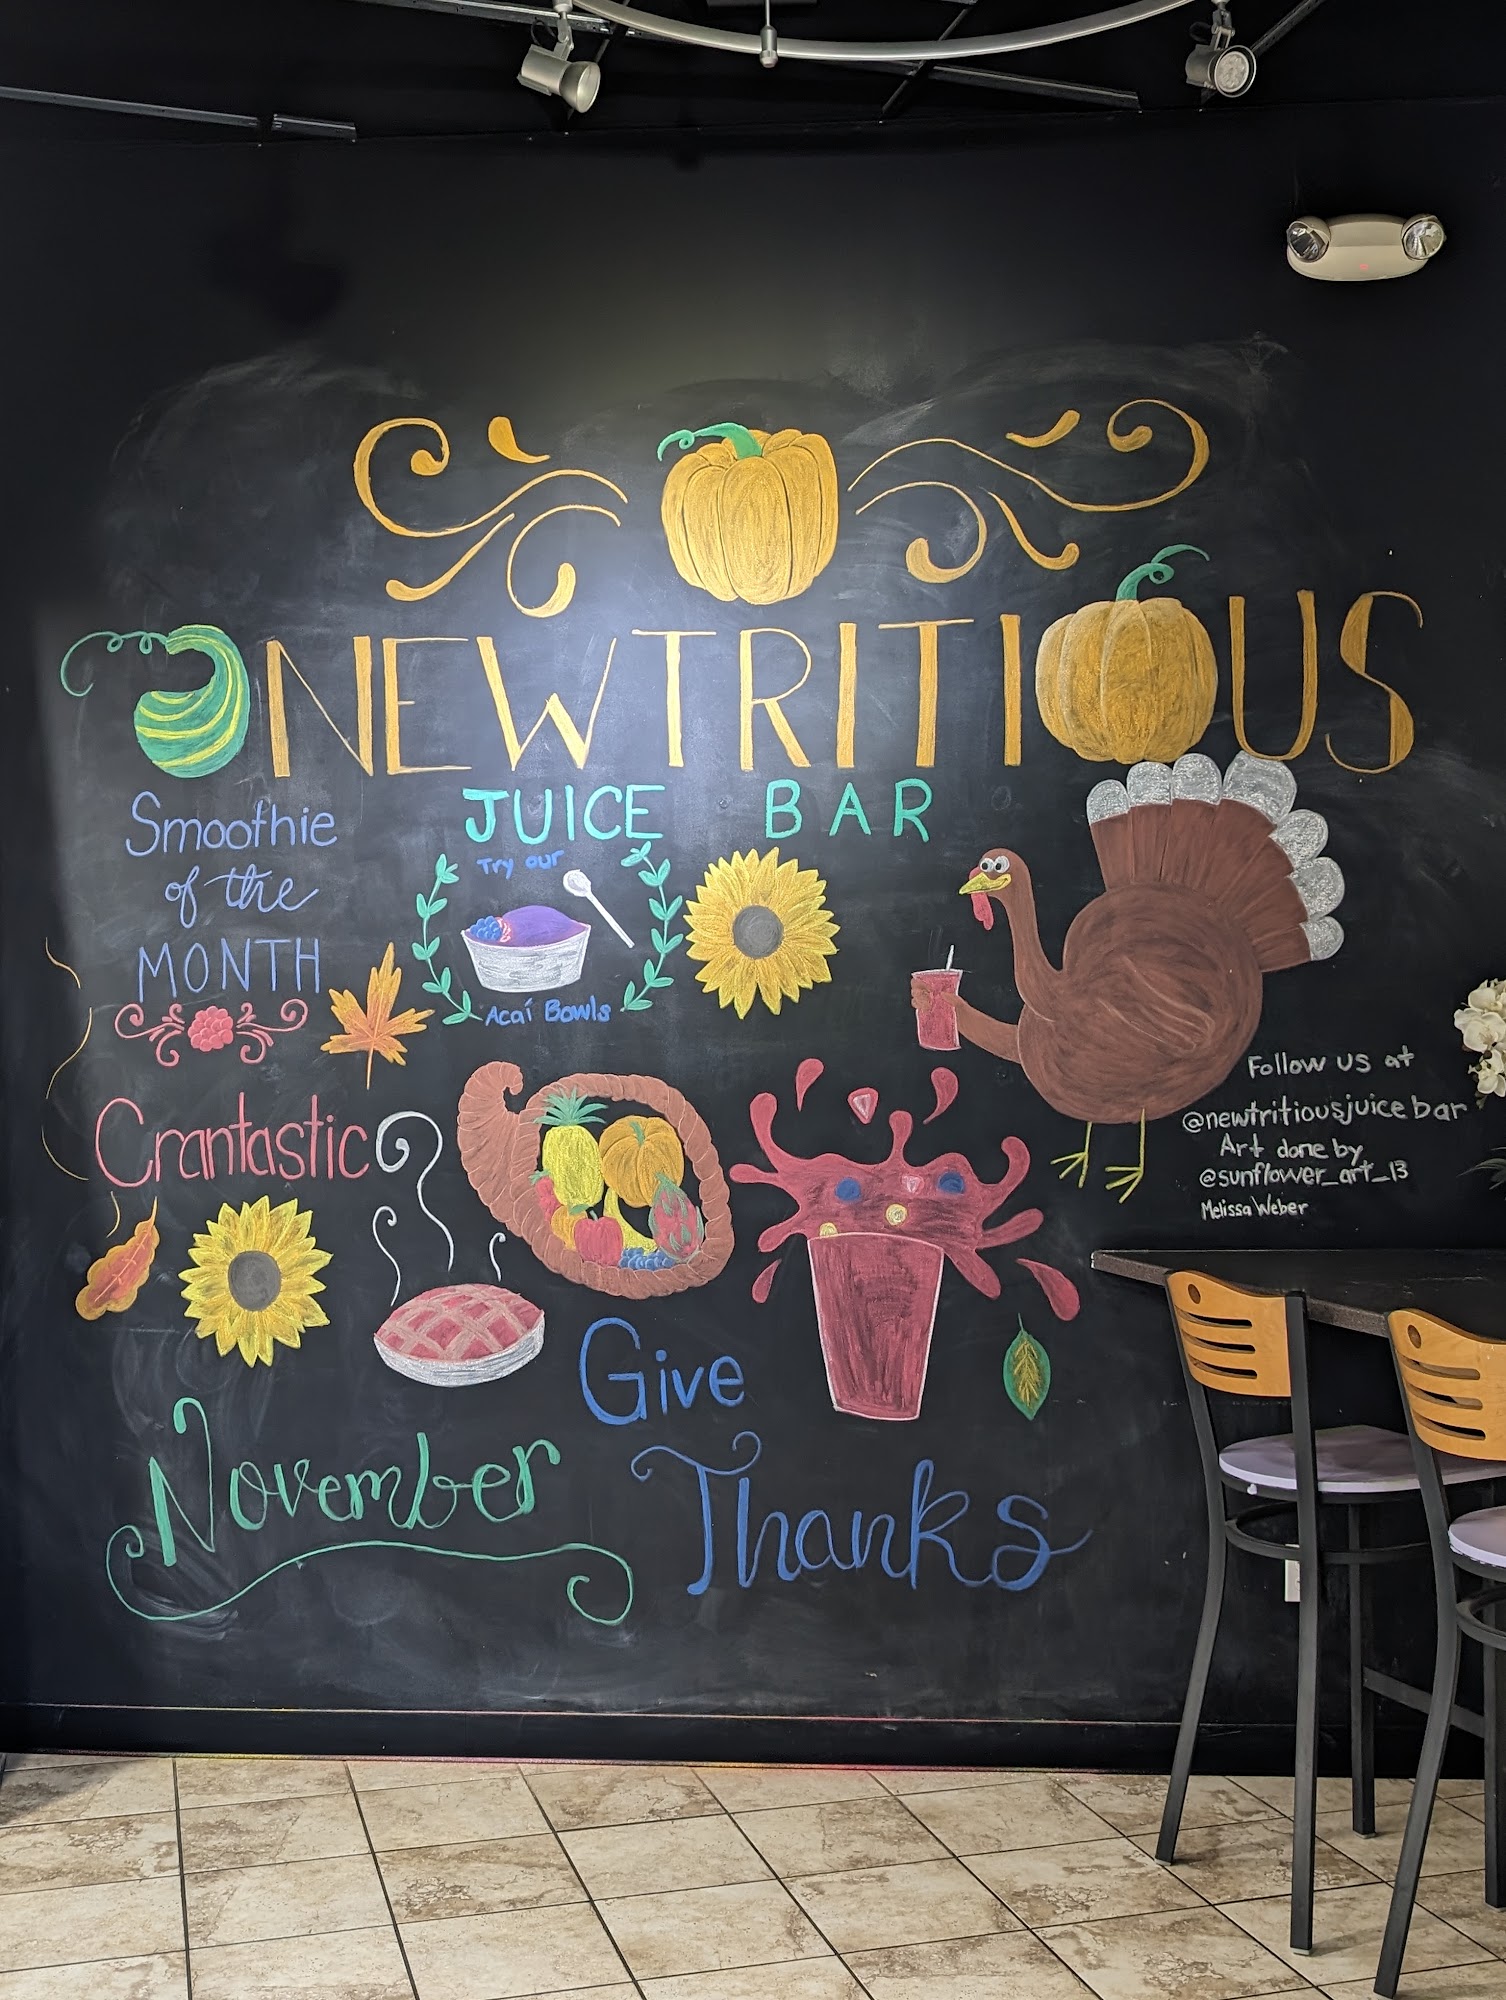 NEWTRITIOUS
JUICE BAR
Smoothie
of the
MONTH
Crantastic
Try our
Acaí Bowls
Follow us at
@newtritiousjuicebar
Art done by
@sunflower_art_13
Melissa Weber
November
Give
Thanks